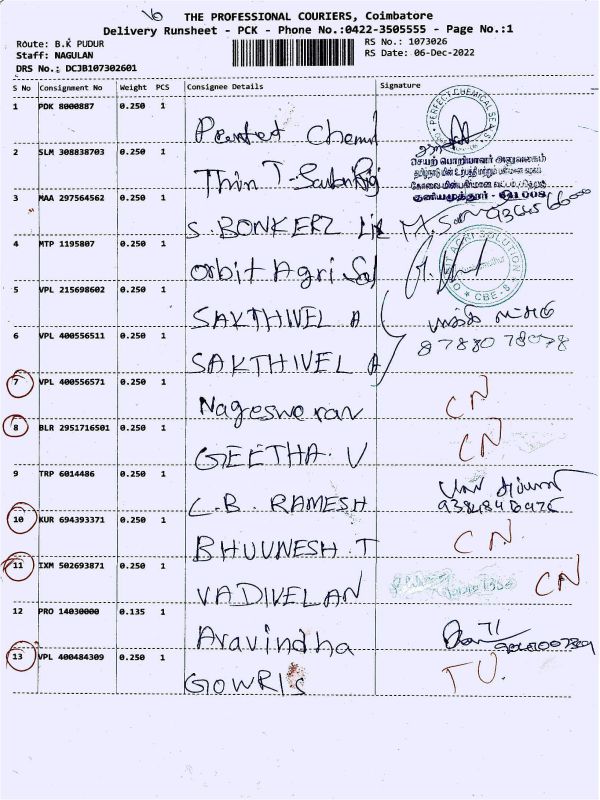 THE PROFESSIONAL COURIERS, Coimbatore
Delivery Runsheet - PCK - Phone No.:0422-3505555 - Page No.:1
Route: B.K PUDUR
RS No.: 1073026
Staff: NAGULAN
RS Date: 06-Dec-2022
DRS No.: DCJB107302601
S No Consignment No Weight PCS Consignee Details Signature
1 PDK 8000887 0.250 1
2 SLM 308838703 0.250 1
செயற் பொறியாளர் அலுவலகம்
3 MAA 297564562 0.250 1 S. BONKERZ
குனியமுத்தூர் - 641 008
4 MTP 1195807 0.250 1 Orbit Agri Sol
5 VPL 215698602 0.250 1 SAKTHIVEL A
6 VPL 400556511 0.250 1 SAKTHIVEL A
87780 78078
7 VPL 400556571 0.250 1 Nagesweran CN
8 BLR 2951716501 0.250 1 GEETHA. V CN
9 TRP 6014486 0.250 1 C.B. RAMESH
10 KUR 694393371 0.250 1 BHUVNESH. T CN
11 IXM 502693871 0.250 1 VADIVELAN CN
12 PRO 14030000 0.135 1 Aravindha
13 VPL 400484309 0.250 1 GOWRI S